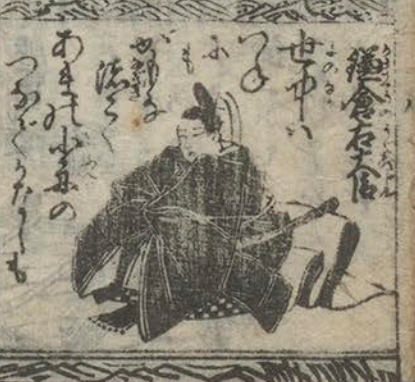 鎌倉右大臣
世中ハ
つね
にも
がもな
渚こぐ
あまの小舟の
つなでかなしも